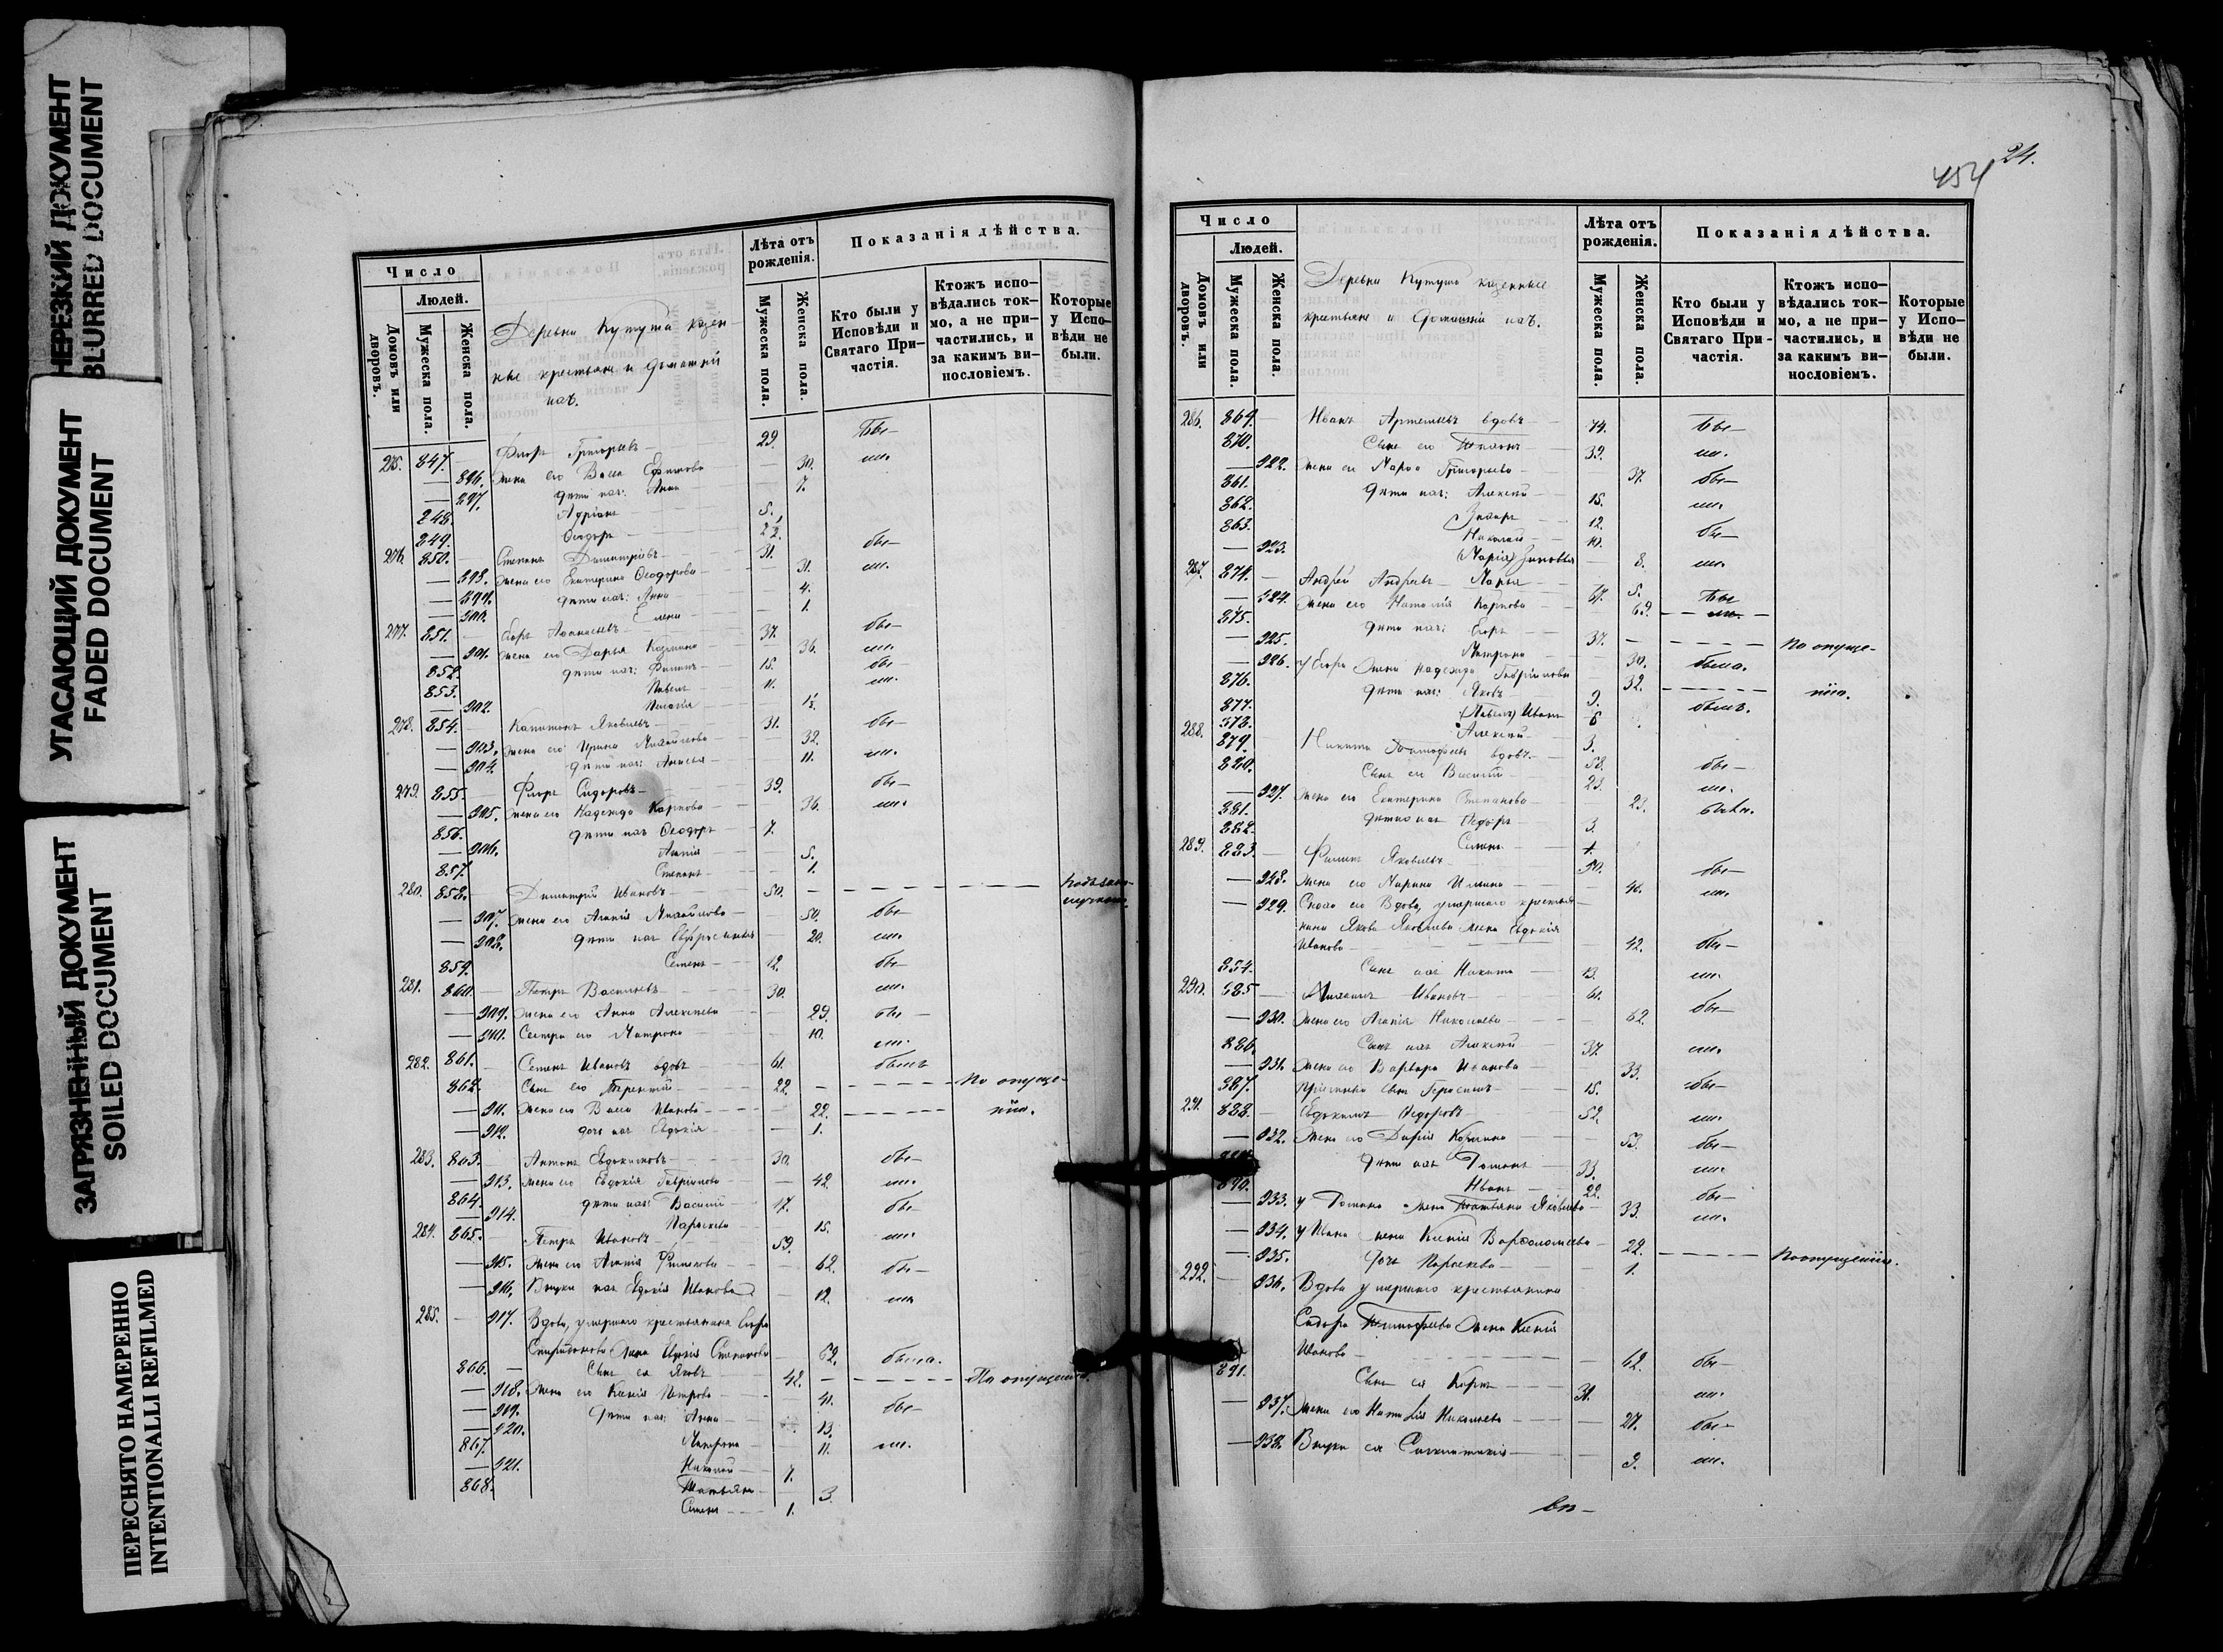 НЕРЕЗКИЙ ДОКУМЕНТ
BLURRED DOCUMENT
УГАСАЮЩИЙ ДОКУМЕНТ
FADED DOCUMENT
ЗАГРЯЗНЕННЫЙ ДОКУМЕНТ
SOILED DOCUMENT
ПЕРЕСНЯТО НАМЕРЕННО
INTENTIONALLI REFILMED
Число
Людей.
Домовъ или дворовъ.
Мужеска пола.
Женска пола.
Деревни Кутуша казен-
ные крестьяне и домашніи
ихъ.
Лѣта отъ рожденія.
Мужеска пола.
Женска пола.
Показанія дѣйства.
Кто были у Исповѣди и Святаго При-частія.
Ктожъ испо-вѣдались ток-мо, а не при-частились, и за какимъ ви-нословіемъ.
Которые у Испо-вѣди не были.
275. 847. Флоръ Григорьевъ 29. бы-
896. Жена его Васса Ефимова 30. ли.
897. дѣти ихъ: Анна 7.
248. Адріанъ 5.
849. Ѳеодоръ 2½
276. 850. Степанъ Димитріевъ 31. бы-
898. Жена его Екатерина Ѳеодорова 31. ли.
899. дѣти ихъ: Анна 4.
900. Елена 1.
277. 851. Егоръ Аѳанасьевъ 37. бы-
901. Жена его Дарья Козмина 36. ли.
852. дѣти ихъ: Филипъ 15. бы-
853. Павелъ 11. ли.
902. Пелагія
278. 854. Капитонъ Яковлевъ 31. бы-
903. Жена его Ирина Михайлова 32. ли.
904. дѣти ихъ: Анисья 11.
279. 855. Флоръ Сидоровъ 39. бы-
905. Жена его Надежда Карпова 36. ли.
856. дѣти ихъ Ѳеодоръ 7.
906. Агапія 5.
857. Степанъ 1.
280. 858. Димитрій Ивановъ 50.
907. Жена его Агапія Михайлова 50. бы-
908. дѣти ихъ Евфросинья 20. ли.
859. Семенъ 12. бы-
281. 860. Петръ Васильевъ 30. ли.
909. Жена его Анна Алексѣева 29. бы-
910. Сестра его Матрона 10. ли.
282. 861. Семенъ Ивановъ вдовъ 61. былъ
862. Сынъ его Терентій 22. По опуще-
911. Жена его Васса Иванова 22. нію.
912. дочь ихъ Евдокія 1.
283. 863. Антонъ Евдокимовъ 30. бы-
913. Жена его Евдокія Гавріилова 42. ли.
864. дѣти ихъ: Василій 17. бы-
914. Парасковія 15. ли.
284. 865. Петръ Ивановъ 59.
915. Жена его Агапія Филипова 62. бы-
916. Внучка ихъ Евдокія Иванова 12. ли
285. 917. Вдова, умершаго крестьянина Егора
Спиридонова Жена Степанова 62. была.
866. Сынъ ея Яковъ 42. По опущенію.
918. Жена его Ксенія Петрова 41. бы-
919. Дѣти ихъ: Анна 13.
920. Матрона 11. ли.
867. Николай 7.
921. Татьяна 3.
868. Семенъ 1.
454 24.
Число
Людей.
Домовъ или дворовъ.
Мужеска пола.
Женска пола.
Деревни Кутуша казенные
крестьяне и домашніи ихъ.
Лѣта отъ рожденія.
Мужеска пола.
Женска пола.
Показанія дѣйства.
Кто были у Исповѣди и Святаго При-частія.
Ктожъ испо-вѣдались ток-мо, а не при-частились, и за какимъ ви-нословіемъ.
Которые у Испо-вѣди не были.
286. 869. Иванъ Артемьевъ вдовъ 74. бы-
870. Сынъ его 39. ли.
922. Жена его Марѳа Григорьева 37. бы-
861. дѣти ихъ: Алексѣй 15. ли.
862. 12. бы-
863. Николай 10.
923. (Марія) Зиновья 8. ли.
287. 874. Андрей Андреевъ Марья 67. 5. бы
924. Жена его Наталія Карпова 69. ли.
875. дѣти ихъ: Егоръ 37. По опуще-
925. Матрона 30. была.
926. у Егора Жена Надежда Гавріилова 32. нію.
876. дѣти ихъ: Яковъ 9. былъ.
877. (Павелъ) Иванъ 6
878. Алексѣй 3.
288. 879. Никита Тимофеевъ вдовъ 58. бы-
880. Сынъ его Василій 23. ли.
927. Жена его Екатерина Степанова 23. была.
881. дѣти ихъ Ѳедоръ 3.
882. Семенъ 1.
289. 883. Филипъ Яковлевъ 50. бы-
928. Жена его Марина Ильина 40. ли.
929. Сноха его Вдова, умершаго крестья-
нина Якова Яковлева жена Евдокія
Иванова 42. бы-
854. Сынъ ихъ Никита 13. ли.
290. 885 Михаилъ Ивановъ 61. бы-
930. Жена его Агапія Николаева 62.
886. Сынъ ихъ Алексѣй 37. ли.
931. Жена его Варвара Иванова 33.
887. Сынъ Герасимъ 15. бы-
291. 888. Евдокимъ Ѳедоровъ 52. ли.
932. Жена его Дарія Козмина 53. бы-
дѣти ихъ Романъ 33. ли.
890. Иванъ 22.
933. у Романа жена Татьяна Яковлева 33. бы- ли.
934. у Ивана жена Ксенія Варѳоломеева 22. По опущенію.
935. Дочь Парасковія 1.
292. 936. Вдова умершаго крестьянина
Сидора Тимофеева Жена Ксенія
Иванова 62. бы-
891. Сынъ ея Карпъ 31. ли.
937. Жена его Наталія Николаева 27. бы-
938. Внучка ея 9. ли.